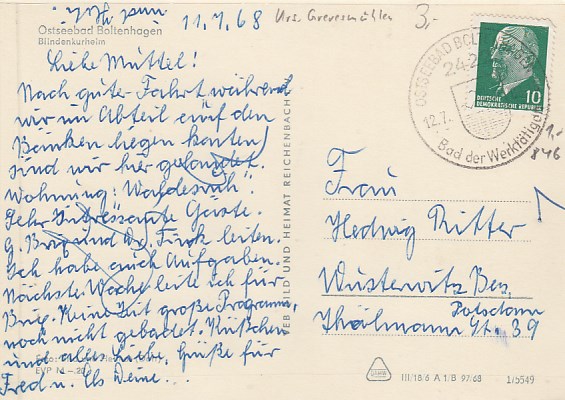 11.7.68
Krs. Grevesmühlen
3,-
Ostseebad Boltenhagen
Blindenkurheim
Liebe Muttel!
Nach guter Fahrt während
wir im Abteil auf den
Bänken liegen konten
sind wir hier gelandet.
Wohnung: "Waldesruh"
Sehr Interessante Gäste.
G. Burg und Dr. Fink leiten.
Ich habe auch Aufgaben.
Nächste Woche leite ich für
Burg. Keine Zeit große Programm,
noch nicht gebadet. Küßchen
und alles Liebe, Grüße für
Fred u. Els Deine...
EVP M -,20
VEB BILD UND HEIMAT REICHENBACH
OSTSEEBAD BOLTENHAGEN
242
12.7.
Bad der Werktätigen
10
DEUTSCHE
DEMOKRATISCHE REPUBLIK
1,-
846
Frau
Hedwig Ritter
Wusterwitz Bez.
Potsdam
Thälmann St. 39
III/18/6 A 1/B 97/68
1/5549